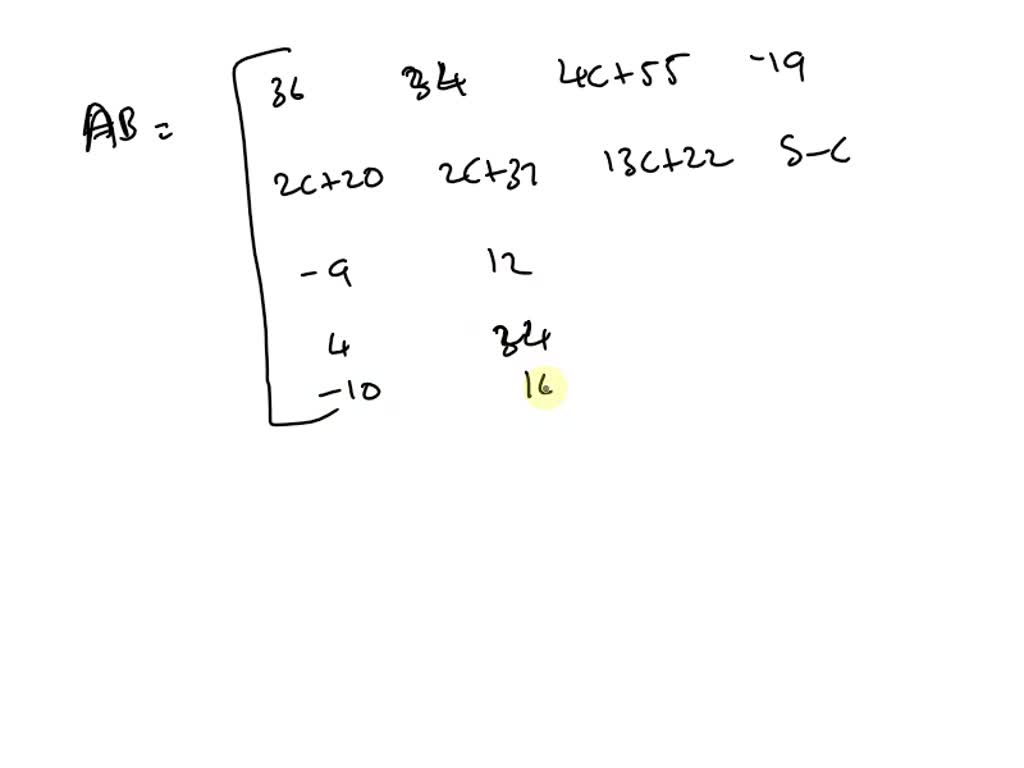 36 34 4C+55 -19
AB =
2C+20 2C+37 13C+22 5-C
-9 12
4 34
-10 16